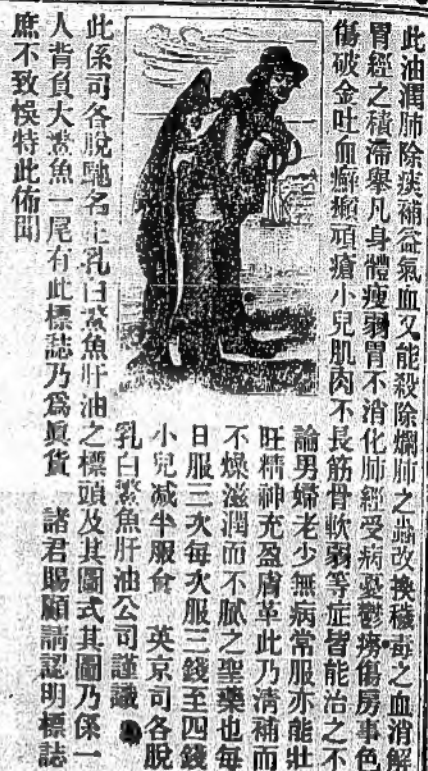 此油潤肺除痰補益氣血又能殺除爛肺之蟲改換穢毒之血消解
胃經之積滯舉凡身體瘦弱胃不消化肺經受病憂鬱癆傷房事色
傷破金吐血癬癩頑瘡小兒肌肉不長筋骨軟弱等症皆能治之不
論男婦老少無病常服亦能壯
旺精神充盈膚革此乃清補而
不燥滋潤而不膩之聖藥也每
日服三次每次服三錢至四錢
小兒减半服食 英京司各脫
乳白鰵魚肝油公司謹識
此係司各脫馳名之乳白鰵魚肝油之標頭及其圖式其圖乃係一
人背負大鰵魚一尾有此標誌乃爲眞貨 諸君賜顧請認明標誌
庶不致悞特此佈聞